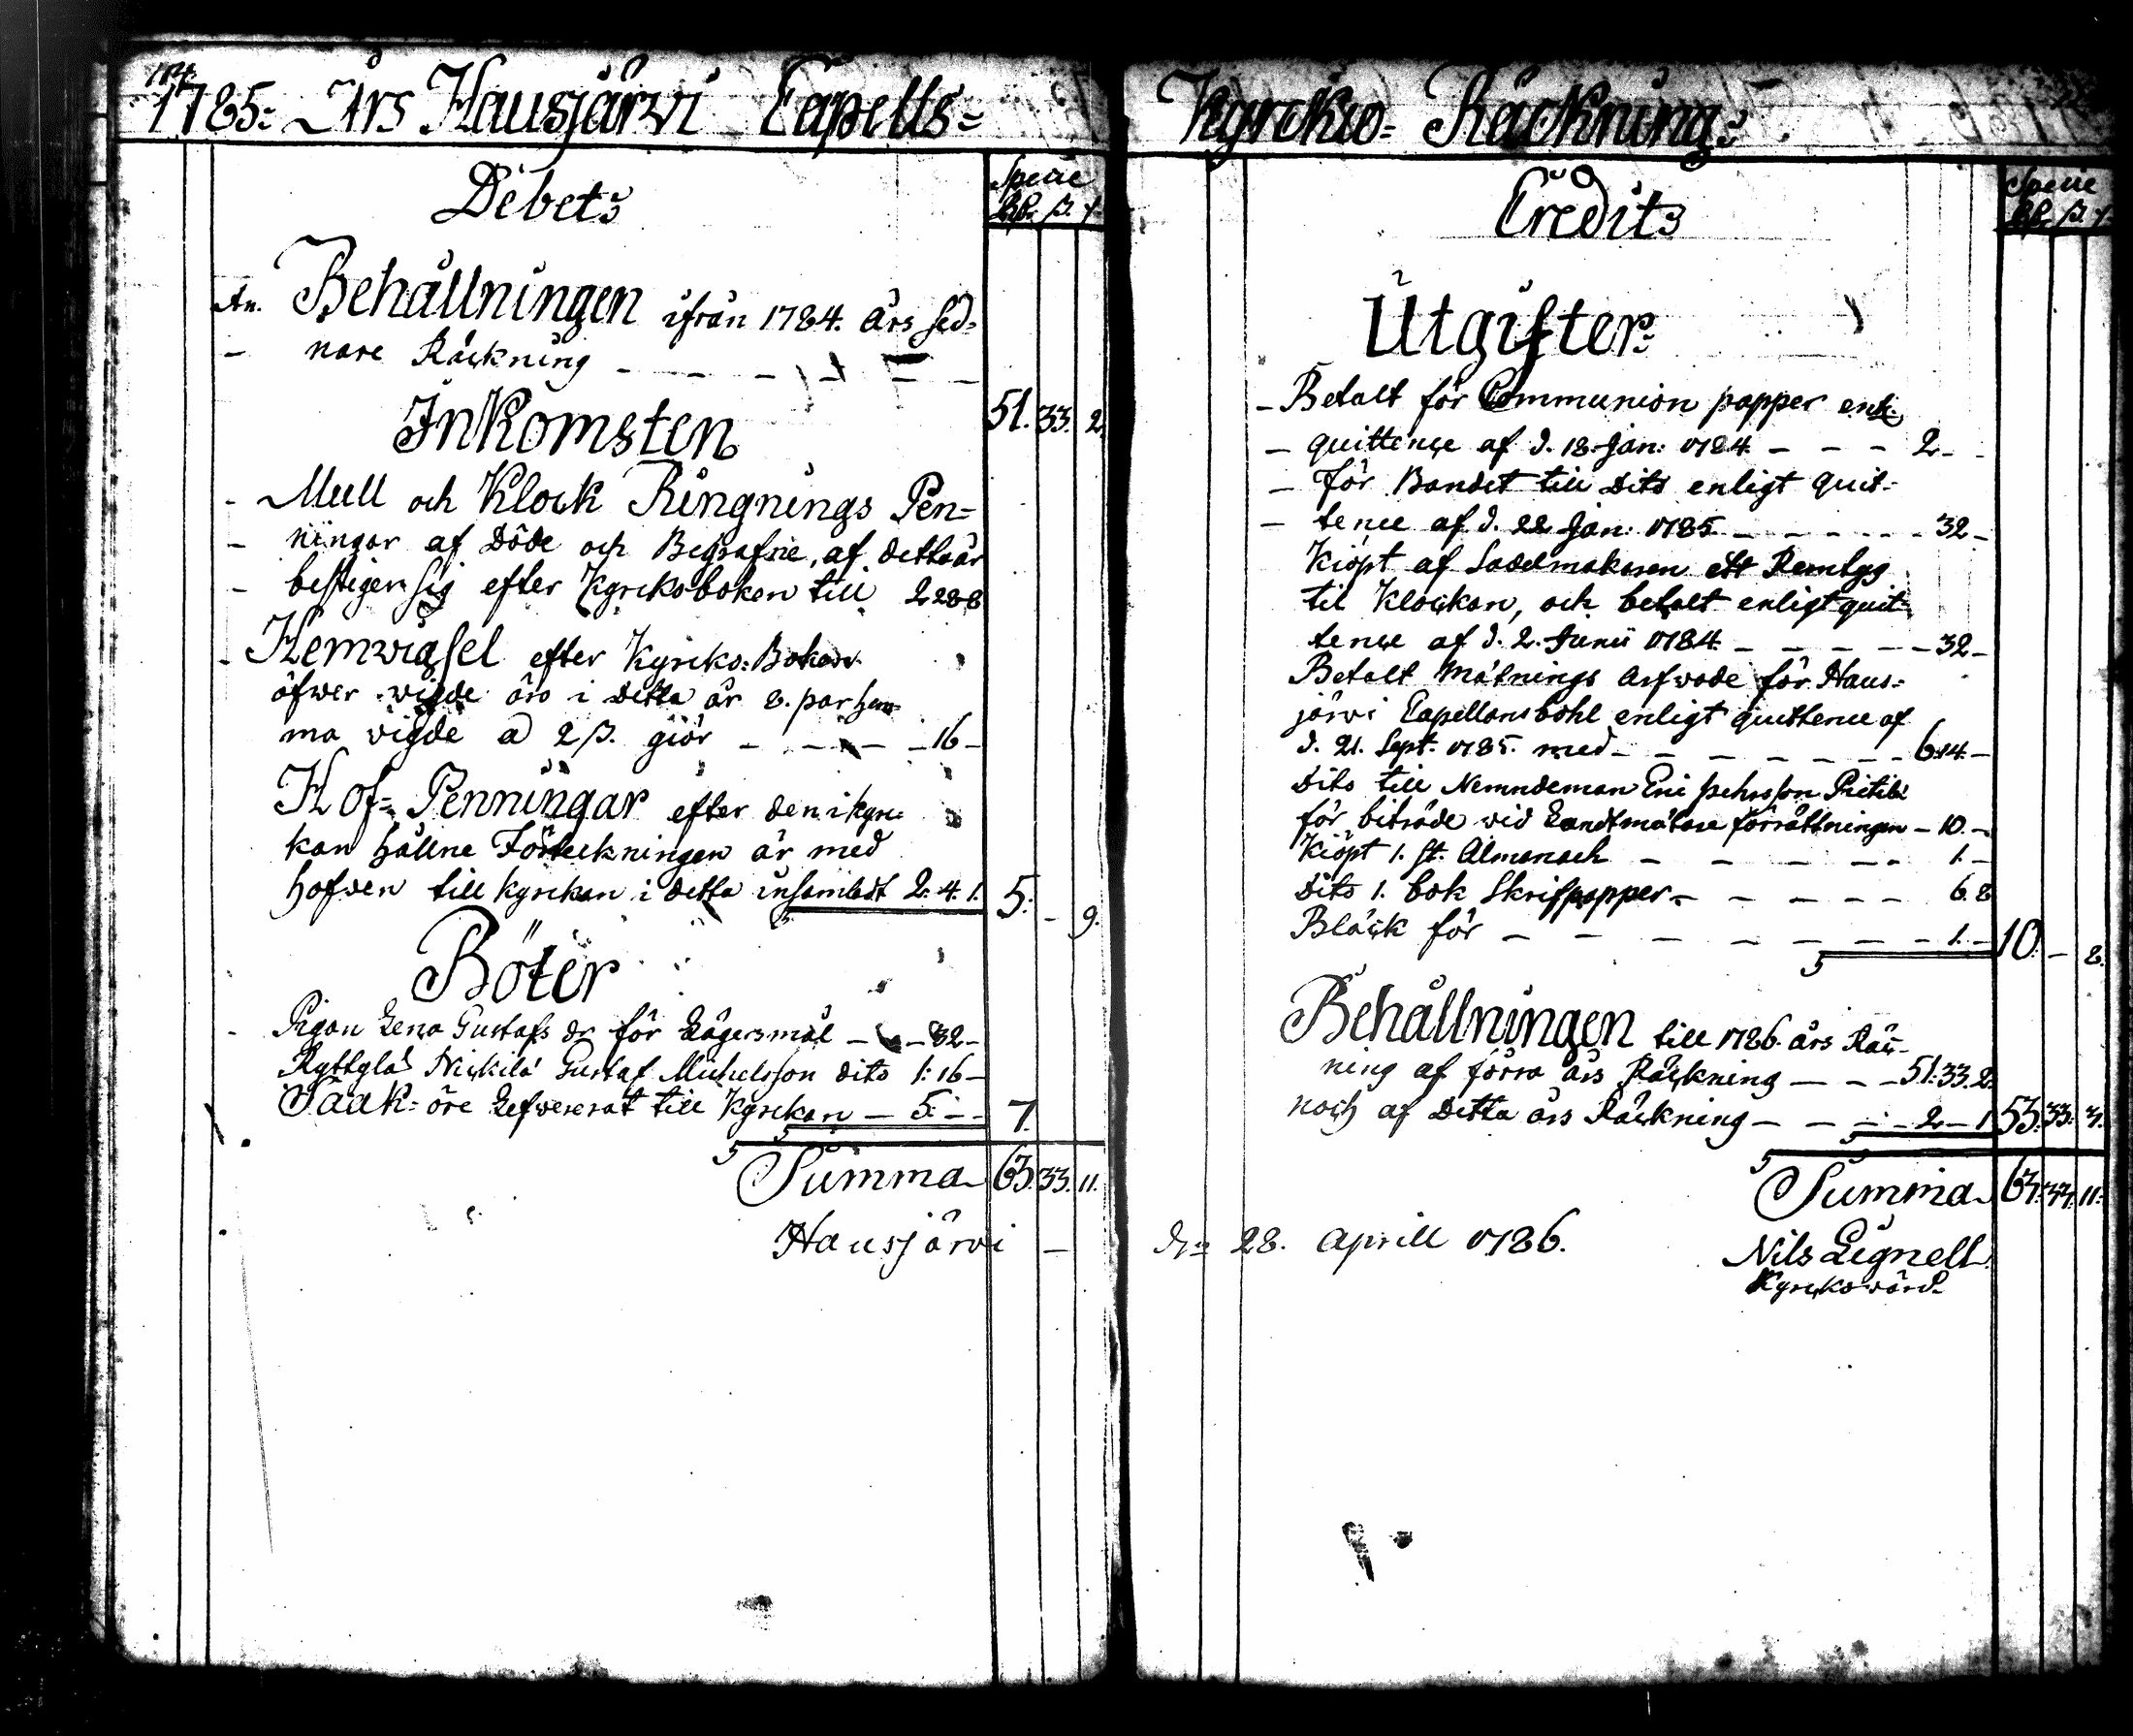 184.
1785: Års Hausjärvi Capells=
Debets
Specie
Rd. ß. r.
An. Behållningen ifrån 1784. års sed=
- nare Räckning - - - - - - 51. 33. 2.
Inkomsten
- Mull och Klock Ringnings Pen=
- ningar af Döde och Begrafne, af detta år
- bestiger sig efter Kyrckoboken till 2 28 8
- Hemvigsel efter Kyrcko: Boken
öfwer wigde äro i detta år 8. par hem=
ma vigde a 2 ß. giör - - - - 16 -
Hof= Penningar efter den i kyrc=
kan hållne Förteckningen är med
hofven till kyrckan i detta insamladt 2. 4. 1. 5. - 9.
Böter
- Pigan Lena Gustafs dr för Lägersmål - - 32 -
Ryttglad Nickilä Gustaf Michelsson dito 1: 16 -
Saak= öre Lefwererat till Kyrckan - 5: - - 7.
Summa 63. 33. 11.
Hausjärvi -
Kyrckio= Räckning:
Credits
Specie
Rd. ß. r.
Utgifter:
- Betalt för Communion papper enl.
- quittence af d. 18. Jan: 1784. - - - 2 - -
- för Bandet till Dito enligt quit=
- tence af d. 22 Jan: 1785 - - - - - 32 -
Kiöpt af Sadelmakaren ett Remtyg
til Klockan, och betalt enligt quit=
tence af d. 2. Junii 1784. - - - - - 32 -
Betalt Mätnings Arfwode för Haus=
järvi Capellansbohl enligt quittence af
d. 21. Sept. 1785. med - - - - - - 6: 14. -
Dito till Nemndeman Eric Pehrsson Pietilä
för biträde wid Landtmätare förrättningen - 10. -
Kiöpt 1. st. Almanach - - - - - 1. -
Dito 1. bok Skrifpapper - - - - - 6. 8
Bläck för - - - - - - - 1. - 10. - 8.
Behållningen till 1786. års Räck=
ning af förra års Räckning - - - 51: 33. 2.
noch af Detta års Räckning - - - - 2 - 1 53: 33: 3.
Summa 63: 33: 11:
d. 28. Aprill 1786.
Nils Lignell.
Kyrckowärd.